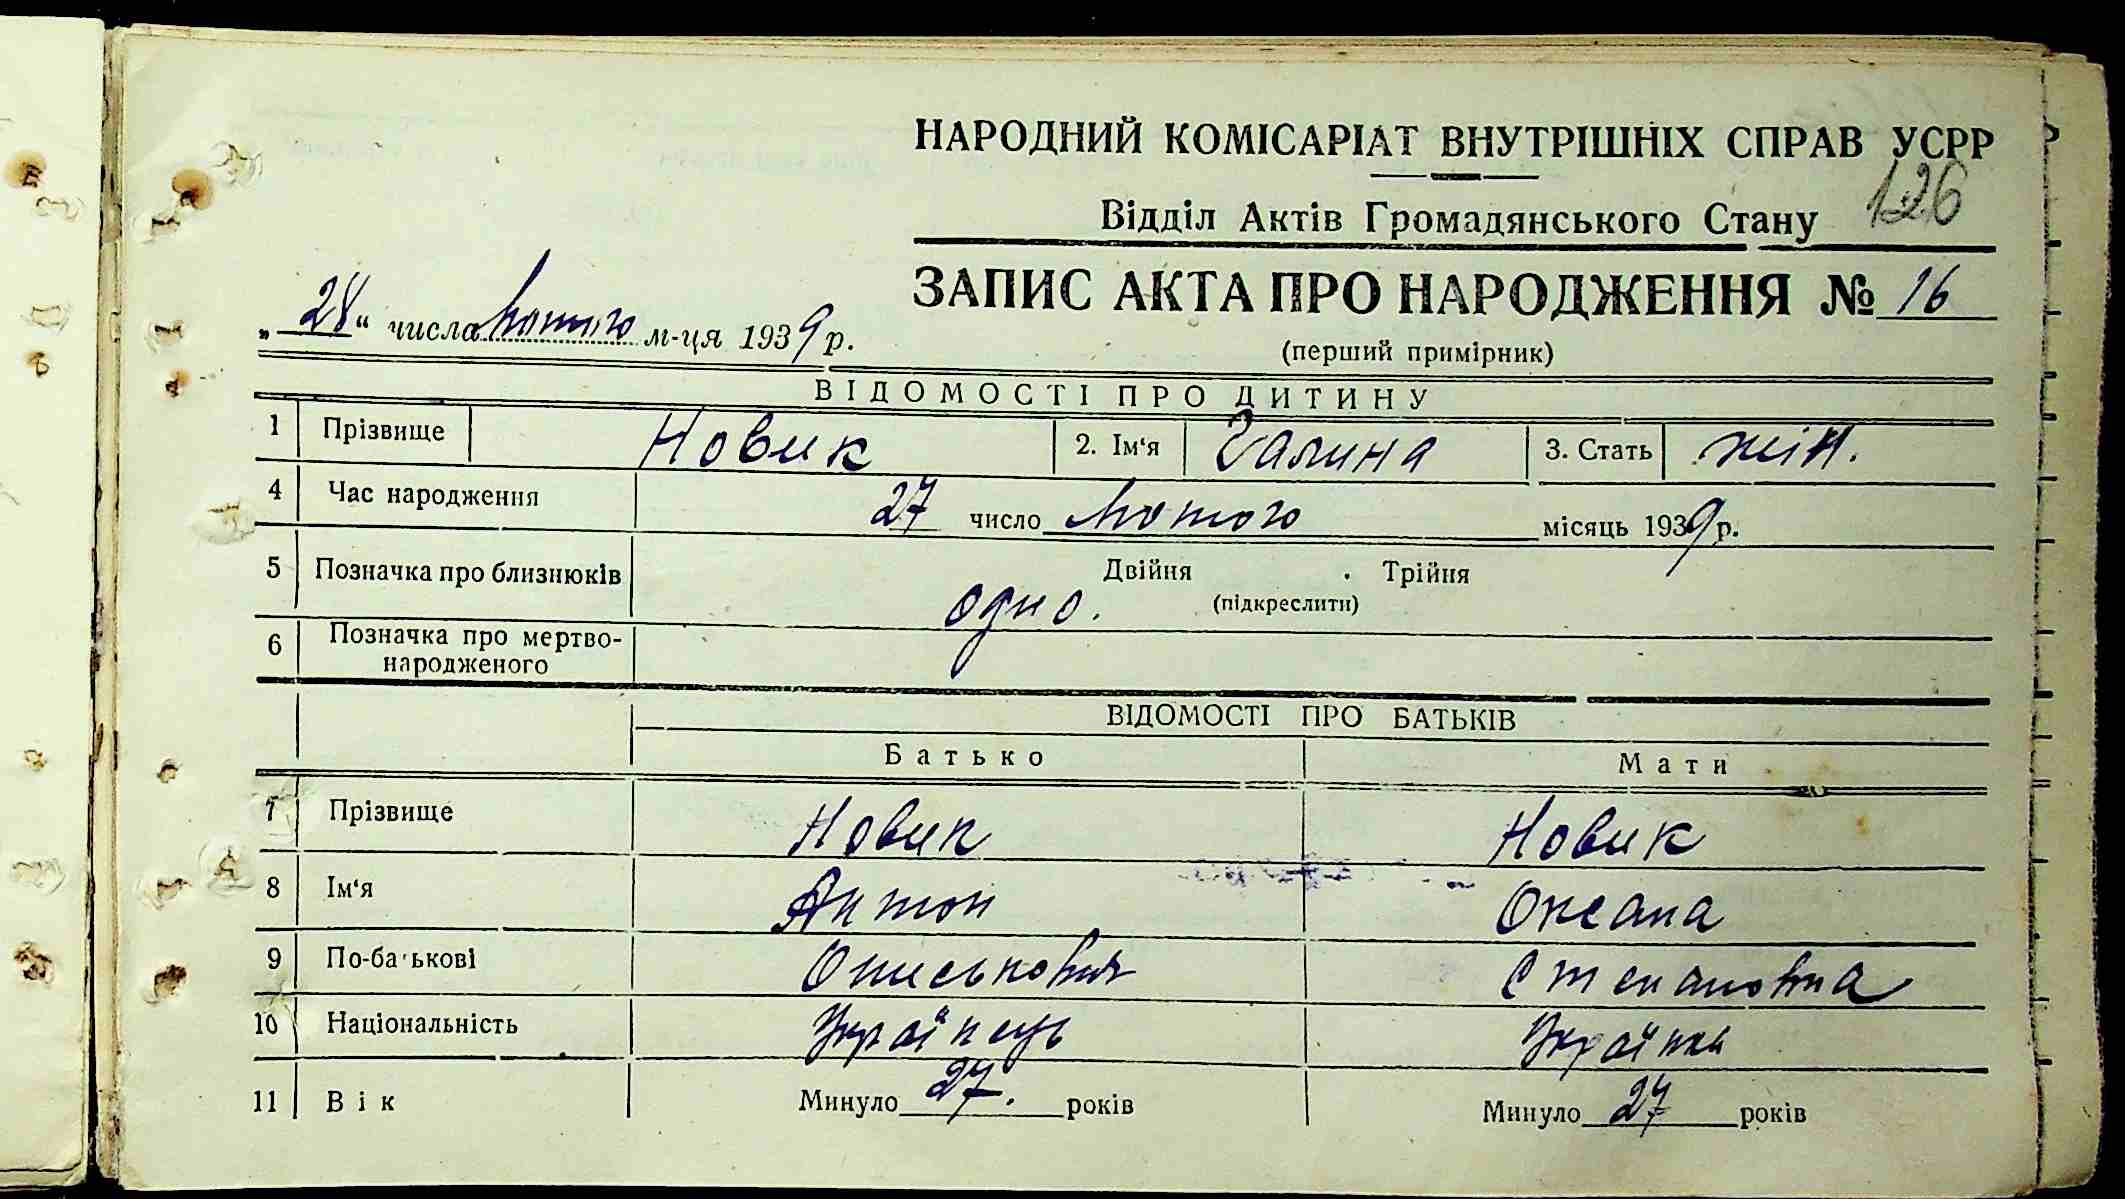 НАРОДНИЙ КОМІСАРІАТ ВНУТРІШНІХ СПРАВ УСРР
126
Відділ Актів Громадянського Стану
ЗАПИС АКТА ПРО НАРОДЖЕННЯ № 16
„28“ числа лютого м-ця 1939 р.
(перший примірник)
ВІДОМОСТІ ПРО ДИТИНУ
1 Прізвище Новик 2. Ім‘я Галина 3. Стать жін.
4 Час народження 27 число лютого місяць 1939 р.
5 Позначка про близнюків одно. Двійня Трійня
(підкреслити)
6 Позначка про мертво-
народженого
ВІДОМОСТІ ПРО БАТЬКІВ
Батько Мати
7 Прізвище Новик Новик
8 Ім‘я Антон Оксана
9 По-батькові Степановна
10 Національність Українець Українка
11 Вік Минуло 27. років Минуло 27 років